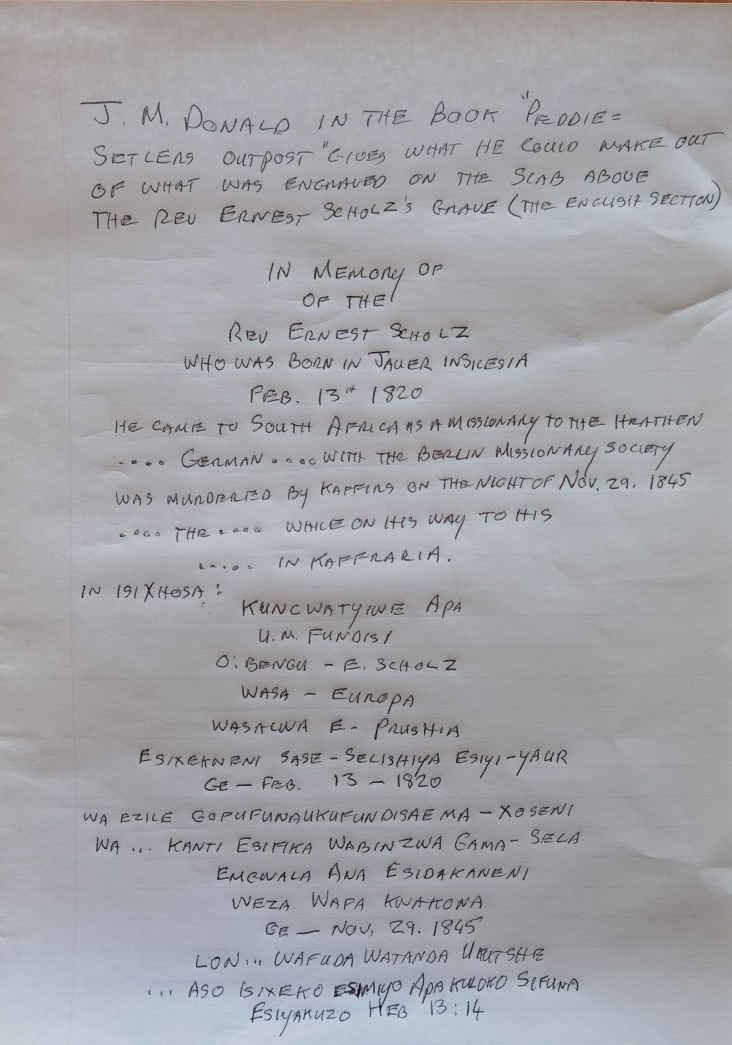 J. M. DONALD IN THE BOOK "PEDDIE =
SETLERS OUTPOST" GIVES WHAT HE COULD MAKE OUT
OF WHAT WAS ENGRAVED ON THE SLAB ABOVE
THE REV ERNEST SCHOLZ'S GRAVE (THE ENGLISH SECTION)
IN MEMORY OF
OF THE
REV ERNEST SCHOLZ
WHO WAS BORN IN JAUER IN SILESIA
FEB. 13TH 1820
HE CAME TO SOUTH AFRICA AS A MISSIONARY TO THE HEATHEN
.... GERMAN .... WITH THE BERLIN MISSIONARY SOCIETY
WAS MURDERED BY KAFFIRS ON THE NIGHT OF NOV. 29. 1845
.... THE .... WHILE ON HIS WAY TO HIS
..... IN KAFFRARIA.
IN ISIXHOSA :
KUNCWATYIWE APA
U.M. FUNDISI
O: BENGU - E. SCHOLZ
WASA - EUROPA
WASALWA E - PRUSHIA
ESIXEKNENI SASE - SELISHIYA ESIYI - YAUR
GE - FEB. 13 - 1820
WA EZILE GOPUFUNAUKUFUNDISAEMA - XOSENI
WA ... KANTI ESIFIKA WABINZWA GAMA - SELA
EMGWALA ANA ESIDAKANENI
WEZA WAFA KWAKONA
GE - NOV, 29. 1845
LON... WAFUDA WATANDA UKUTSHE
... ASO ISIXEKO ESIMIYO APA KULOKO SIFUNA
ESIYAKUZO HEB 13:14